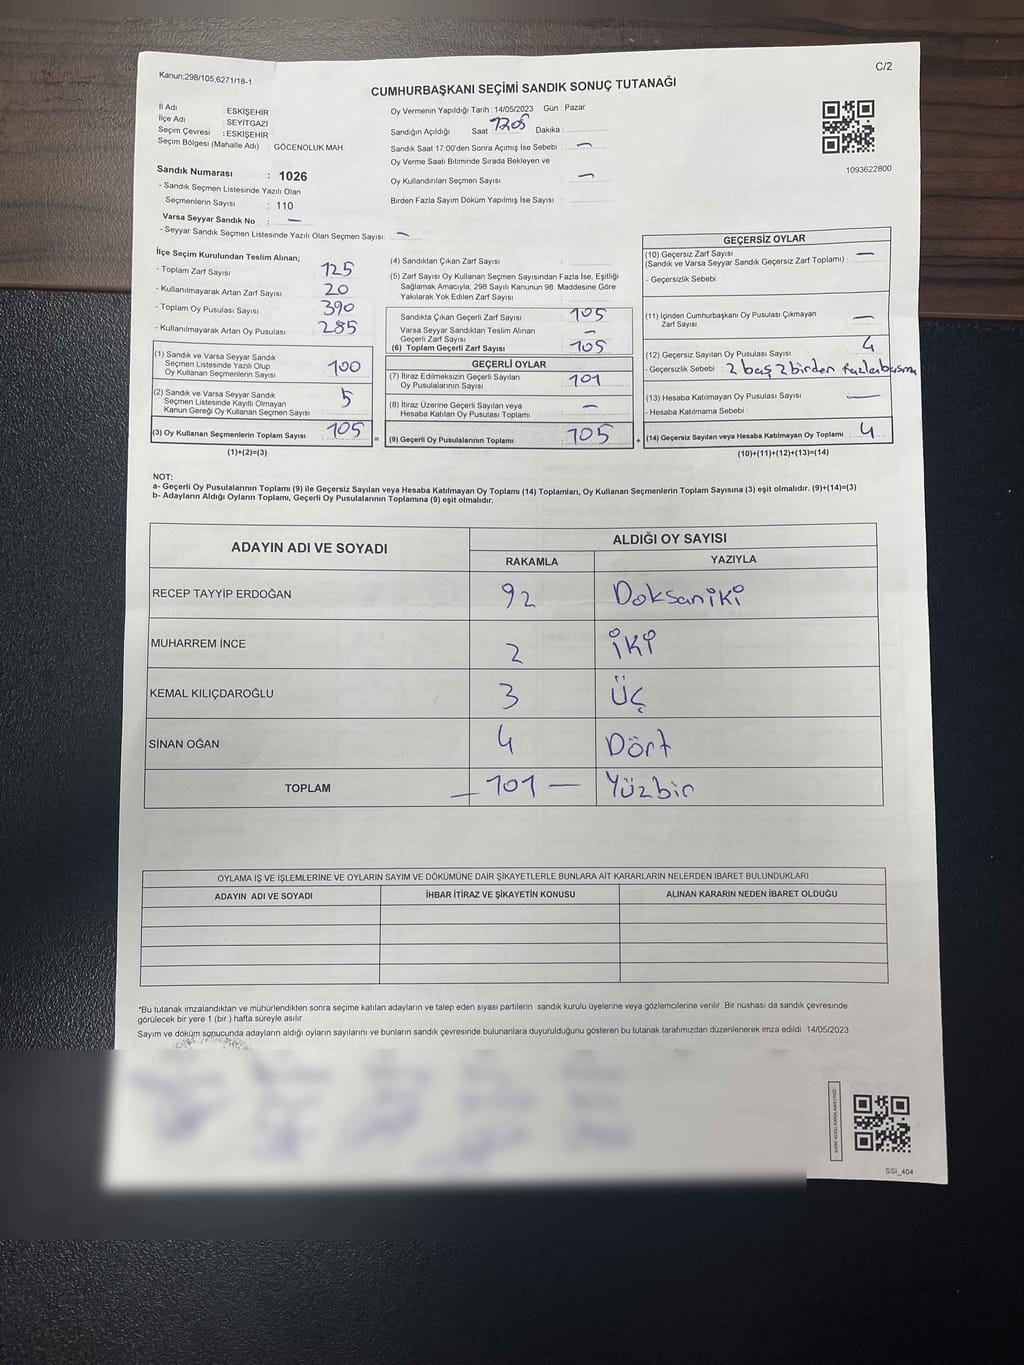 Kanun;298/105,6271/18-1
C/2
CUMHURBAŞKANI SEÇİMİ SANDIK SONUÇ TUTANAĞI
İl Adı : ESKİŞEHİR
İlçe Adı : SEYİTGAZİ
Seçim Çevresi : ESKİŞEHİR
Seçim Bölgesi (Mahalle Adı) : GÖCENOLUK MAH.
Sandık Numarası : 1026
- Sandık Seçmen Listesinde Yazılı Olan
Seçmenlerin Sayısı : 110
Varsa Seyyar Sandık No : —
- Seyyar Sandık Seçmen Listesinde Yazılı Olan Seçmen Sayısı: —
Oy Vermenin Yapıldığı Tarih : 14/05/2023 Gün : Pazar
Sandığın Açıldığı Saat 1705 Dakika :
Sandık Saat 17:00'den Sonra Açımış İse Sebebi : —
Oy Verme Saati Bitiminde Sırada Bekleyen ve
Oy Kullandırılan Seçmen Sayısı : —
Birden Fazla Sayım Döküm Yapılmış İse Sayısı :
1093622800
İlçe Seçim Kurulundan Teslim Alınan;
- Toplam Zarf Sayısı : 125
- Kullanılmayarak Artan Zarf Sayısı : 20
- Toplam Oy Pusulası Sayısı : 390
- Kullanılmayarak Artan Oy Pusulası : 285
(1) Sandık ve Varsa Seyyar Sandık
Seçmen Listesinde Yazılı Olup
Oy Kullanan Seçmenlerin Sayısı : 100
(2) Sandık ve Varsa Seyyar Sandık
Seçmen Listesinde Kayıtlı Olmayan
Kanun Gereği Oy Kullanan Seçmen Sayısı : 5
(3) Oy Kullanan Seçmenlerin Toplam Sayısı : 105
(1)+(2)=(3)
=
(4) Sandıktan Çıkan Zarf Sayısı :
(5) Zarf Sayısı Oy Kullanan Seçmen Sayısından Fazla İse, Eşitliği
Sağlamak Amacıyla, 298 Sayılı Kanunun 98. Maddesine Göre
Yakılarak Yok Edilen Zarf Sayısı :
Sandıkta Çıkan Geçerli Zarf Sayısı : 105
Varsa Seyyar Sandıktan Teslim Alınan
Geçerli Zarf Sayısı : —
(6) Toplam Geçerli Zarf Sayısı : 105
GEÇERLİ OYLAR
(7) İtiraz Edilmeksizin Geçerli Sayılan
Oy Pusulalarının Sayısı : 101
(8) İtiraz Üzerine Geçerli Sayılan veya
Hesaba Katılan Oy Pusulası Toplamı : —
(9) Geçerli Oy Pusulalarının Toplamı : 105
+
GEÇERSİZ OYLAR
(10) Geçersiz Zarf Sayısı
(Sandık ve Varsa Seyyar Sandık Geçersiz Zarf Toplamı) : —
- Geçersizlik Sebebi :
(11) İçinden Cumhurbaşkanı Oy Pusulası Çıkmayan
Zarf Sayısı : —
(12) Geçersiz Sayılan Oy Pusulası Sayısı : 4
- Geçersizlik Sebebi : 2 boş 2 birden fazla basma
(13) Hesaba Katılmayan Oy Pusulası Sayısı : —
- Hesaba Katılmama Sebebi :
(14) Geçersiz Sayılan veya Hesaba Katılmayan Oy Toplamı : 4
(10)+(11)+(12)+(13)=(14)
NOT:
a- Geçerli Oy Pusulalarının Toplamı (9) ile Geçersiz Sayılan veya Hesaba Katılmayan Oy Toplamı (14) Toplamları, Oy Kullanan Seçmenlerin Toplam Sayısına (3) eşit olmalıdır. (9)+(14)=(3)
b- Adayların Aldığı Oyların Toplamı, Geçerli Oy Pusulalarının Toplamına (9) eşit olmalıdır.
ADAYIN ADI VE SOYADI
ALDIĞI OY SAYISI
RAKAMLA YAZIYLA
RECEP TAYYİP ERDOĞAN 92 Doksaniki
MUHARREM İNCE 2 İKİ
KEMAL KILIÇDAROĞLU 3 ÜÇ
SİNAN OĞAN 4 Dört
TOPLAM — 101 — Yüzbir
OYLAMA İŞ VE İŞLEMLERİNE VE OYLARIN SAYIM VE DÖKÜMÜNE DAİR ŞİKAYETLERLE BUNLARA AİT KARARLARIN NELERDEN İBARET BULUNDUKLARI
ADAYIN ADI VE SOYADI İHBAR İTİRAZ VE ŞİKAYETİN KONUSU ALINAN KARARIN NEDEN İBARET OLDUĞU
*Bu tutanak imzalandıktan ve mühürlendikten sonra seçime katılan adayların ve talep eden siyasi partilerin sandık kurulu üyelerine veya gözlemcilerine verilir. Bir nüshası da sandık çevresinde
görülecek bir yere 1 (bir ) hafta süreyle asılır.
Sayım ve döküm sonucunda adayların aldığı oyların sayılarını ve bunların sandık çevresinde bulunanlara duyurulduğunu gösteren bu tutanak tarafımızdan düzenlenerek imza edildi. 14/05/2023
KARE KODU KARALAMAYINIZ!
SSI_404